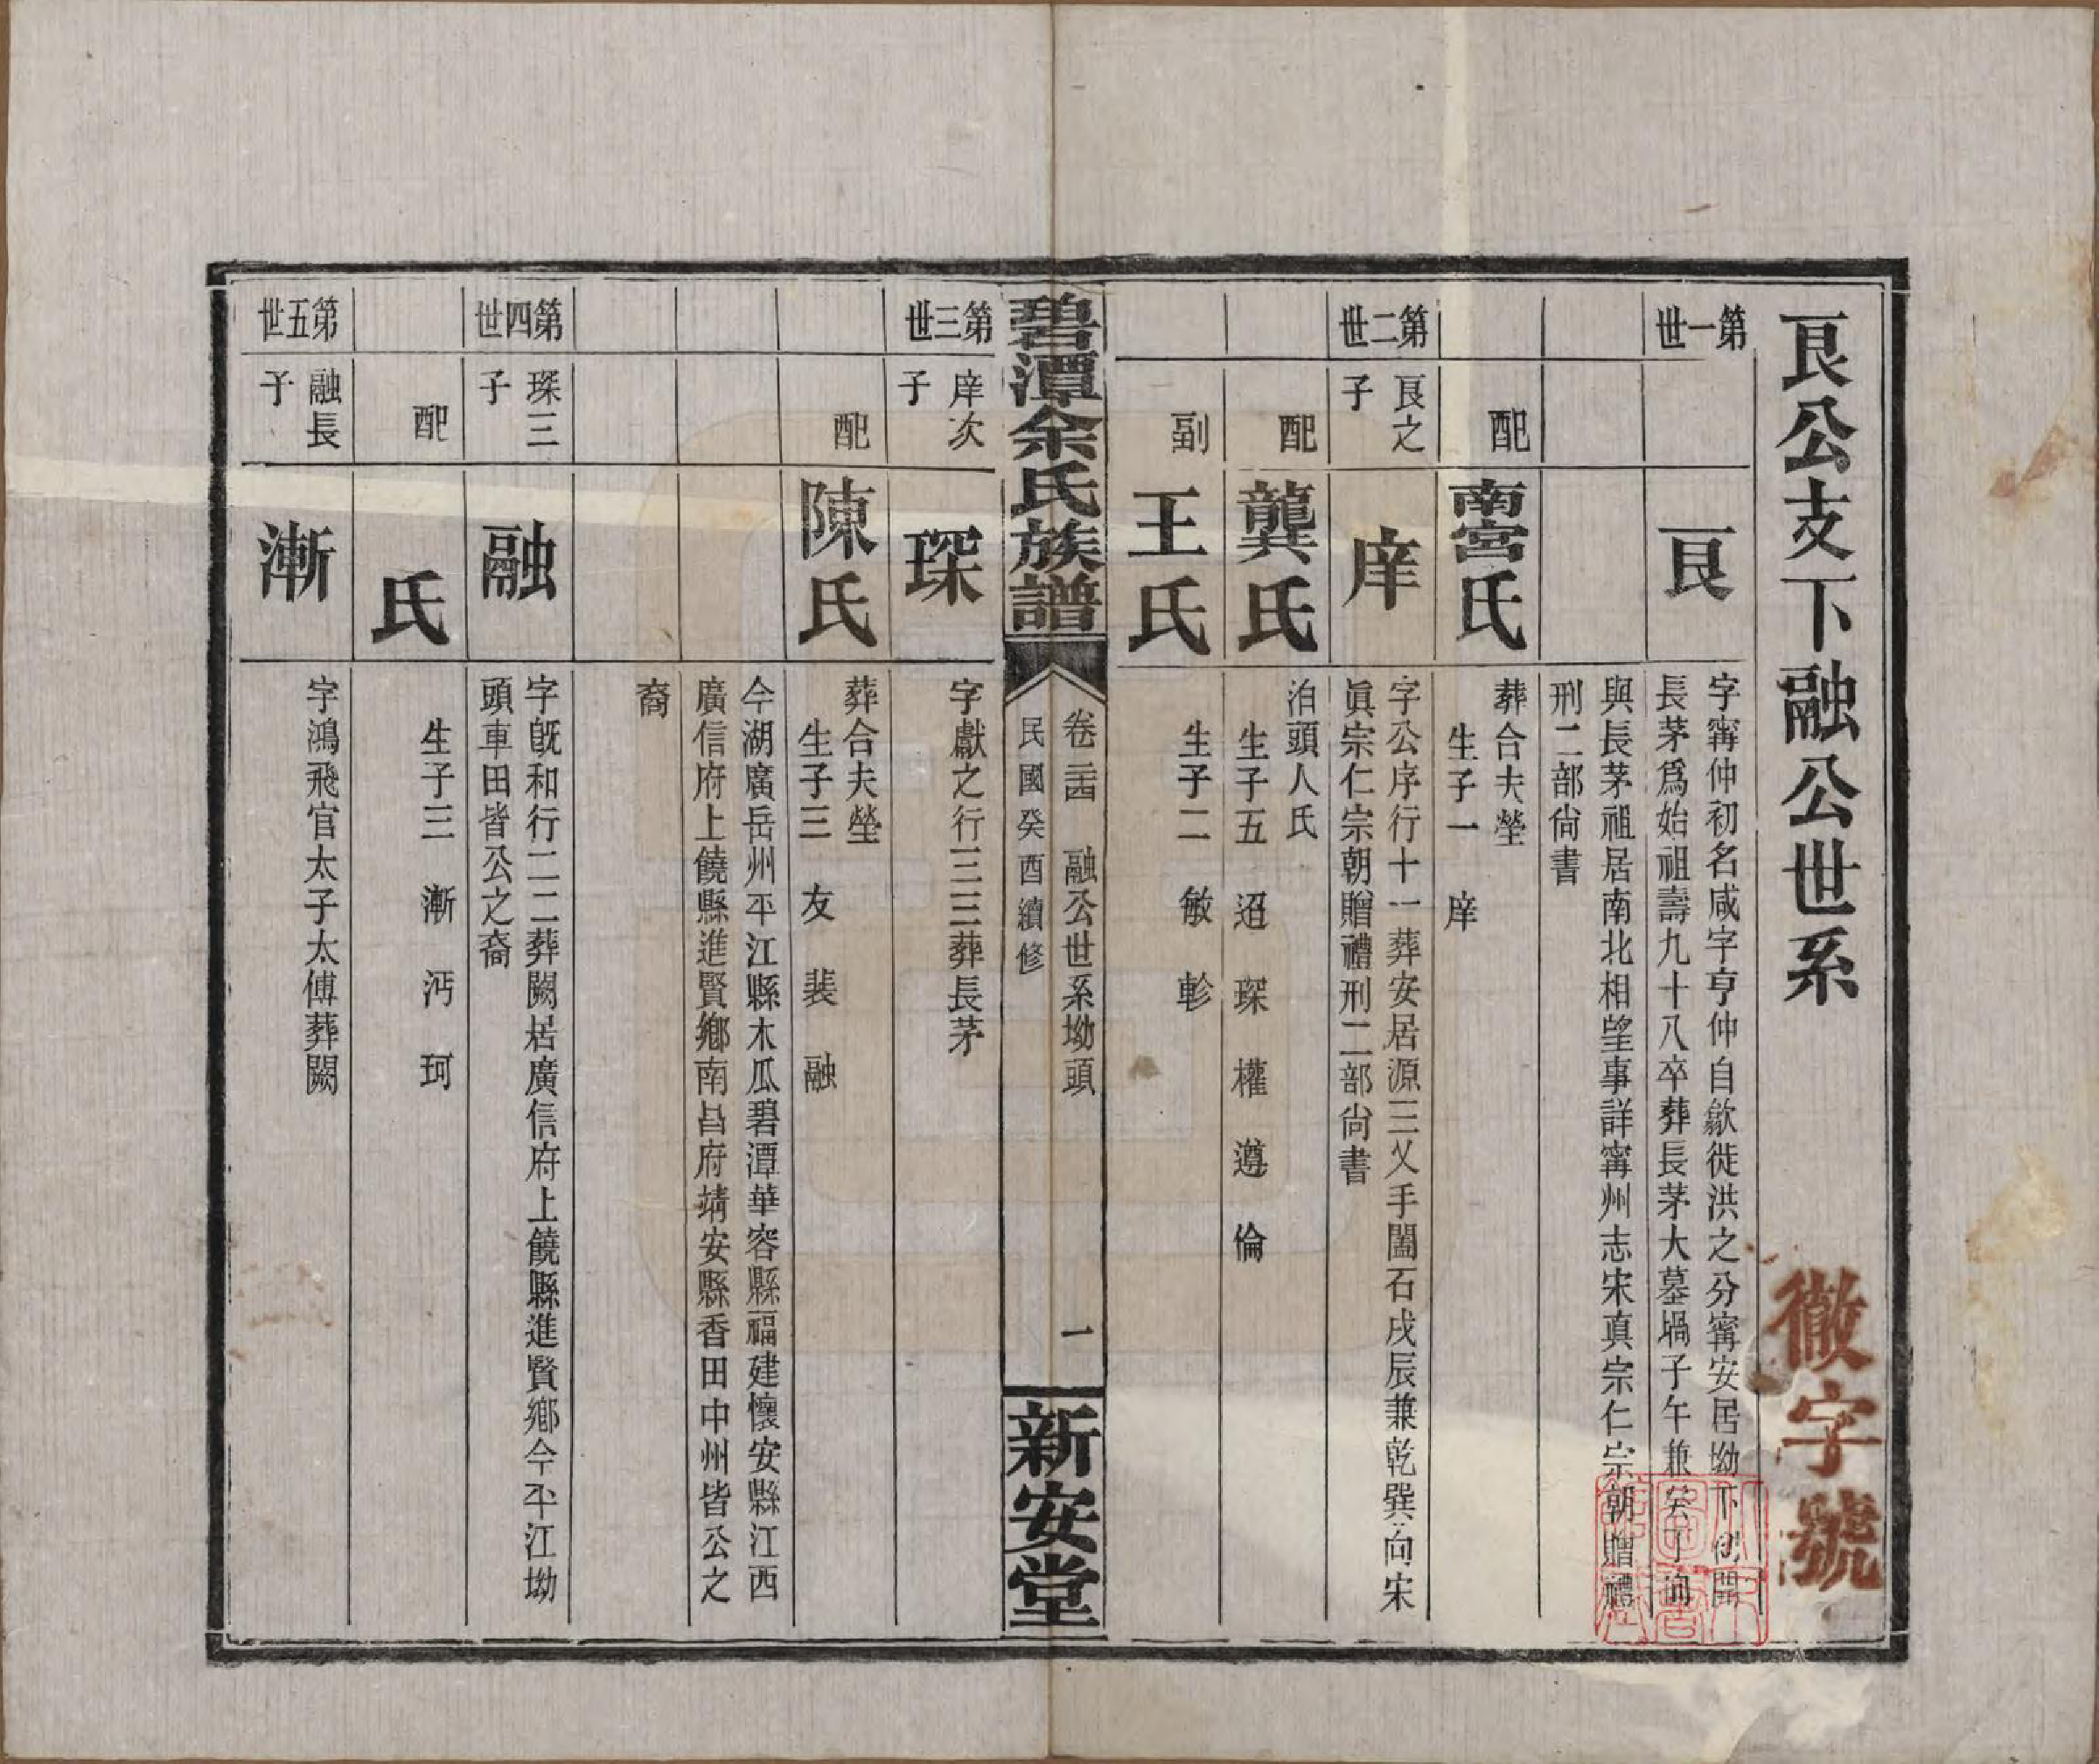 艮公支下融公世系
徽字號
第一世
艮
字甯仲初名咸字亨仲自歙徙洪之分甯安居坳下創開
長茅爲始祖壽九十八卒葬長茅大墓堝子午兼癸丁向
與長茅祖居南北相望事詳甯州志宋真宗仁宗朝贈禮
刑二部尙書
配
南宮氏
葬合夫塋
生子一 庠
第二世
艮之子
庠
字公序行十一葬安居源三乂手闔石戌辰兼乾巽向宋
眞宗仁宗朝贈禮刑二部尙書
配
龔氏
泊頭人氏
生子五 迢 琛 權 遵 倫
副
王氏
生子二 敏 軫
碧潭余氏族譜
卷二四 融公世系坳頭 一
民國癸酉續修
新安堂
第三世
庠次子
琛
字獻之行三三葬長茅
配
陳氏
葬合夫塋
生子三 友 裴 融
今湖廣岳州平江縣木瓜碧潭華容縣福建懷安縣江西
廣信府上饒縣進賢鄉南昌府靖安縣香田中州皆公之
裔
第四世
琛三子
融
字旣和行二二葬闕居廣信府上饒縣進賢鄉今平江坳
頭車田皆公之裔
配
氏
生子三 漸 沔 珂
第五世
融長子
漸
字鴻飛官太子太傅葬闕